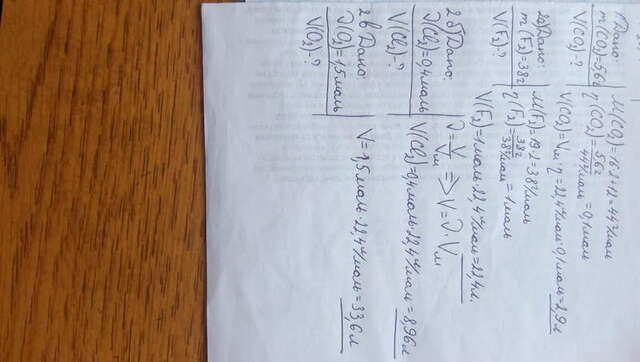 1 Дано:
m(CO₂)=56г
V(CO₂)-?
M(CO₂)=16·2+12=44 г/моль
η(CO₂)=56г/44г/моль=0,1моль
V(CO₂)=Vм·η=22,4л/моль·0,1моль=2,9л
2а Дано:
m(F₂)=38г
V(F₂)-?
M(F₂)=19·2=38г/моль
η(F₂)=38г/38г/моль=1моль
V(F₂)=1моль·22,4л/моль=22,4л.
2б) Дано:
ν(Cl₂)=0,4моль
V(Cl₂)-?
ν=V/Vм => V=ν·Vм
V(Cl₂)=0,4моль·22,4л/моль=8,96л
2в Дано:
ν(O₂)=1,5моль
V(O₂)-?
V=1,5моль·22,4л/моль=33,6л